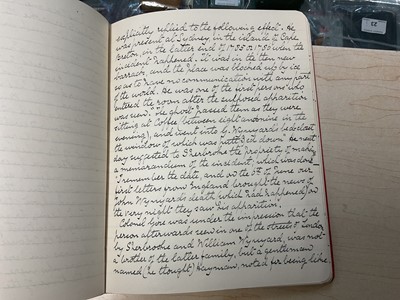 explicitly replied to the following effect. He
was present at Sydney, in the island of Cape
Breton, in the latter end of 1785 or 1786 when the
incident happened. It was in the then new
barrack, and the place was blocked up by ice
so as to have no communication with any part
of the world. He was one of the first persons who
entered the room after the supposed apparition
was seen. The ghost passed them as they were
sitting at Coffee (between eight and nine in the
evening), and went into G. Wynyard's bed closet
the window of which was putt[i]ed down. He next
day suggested to Sherbroke the propriety of making
a memorandum of the incident, which was done.
I remember the date, and on the 5th of June our
first letters from England brought the news of
John Wynyard's death which had happened on
the very night they saw his apparition."
Colonel Gore was under the impression that the
person afterwards seen in one of the streets of London
by Sherbrooke and William Wynyard, was not
a brother of the latter family, but a gentleman
named (he thought) Hayman, noted for being like